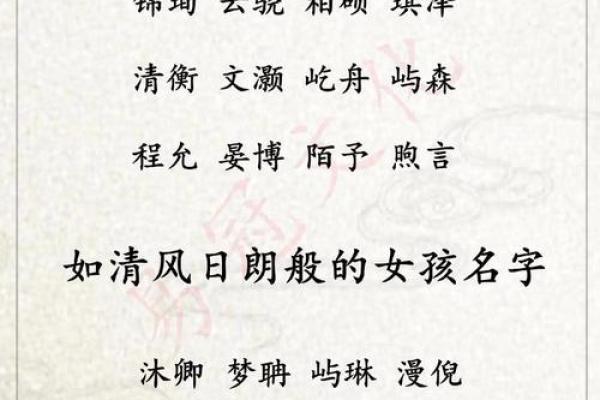 锦珣 云骁 柏硕 琪泽
清衡 文灏 屹舟 屿森
程允 晏博 陌予 煦言
如清风日朗般的女孩名字
沐卿 梦聃 屿琳 漫倪